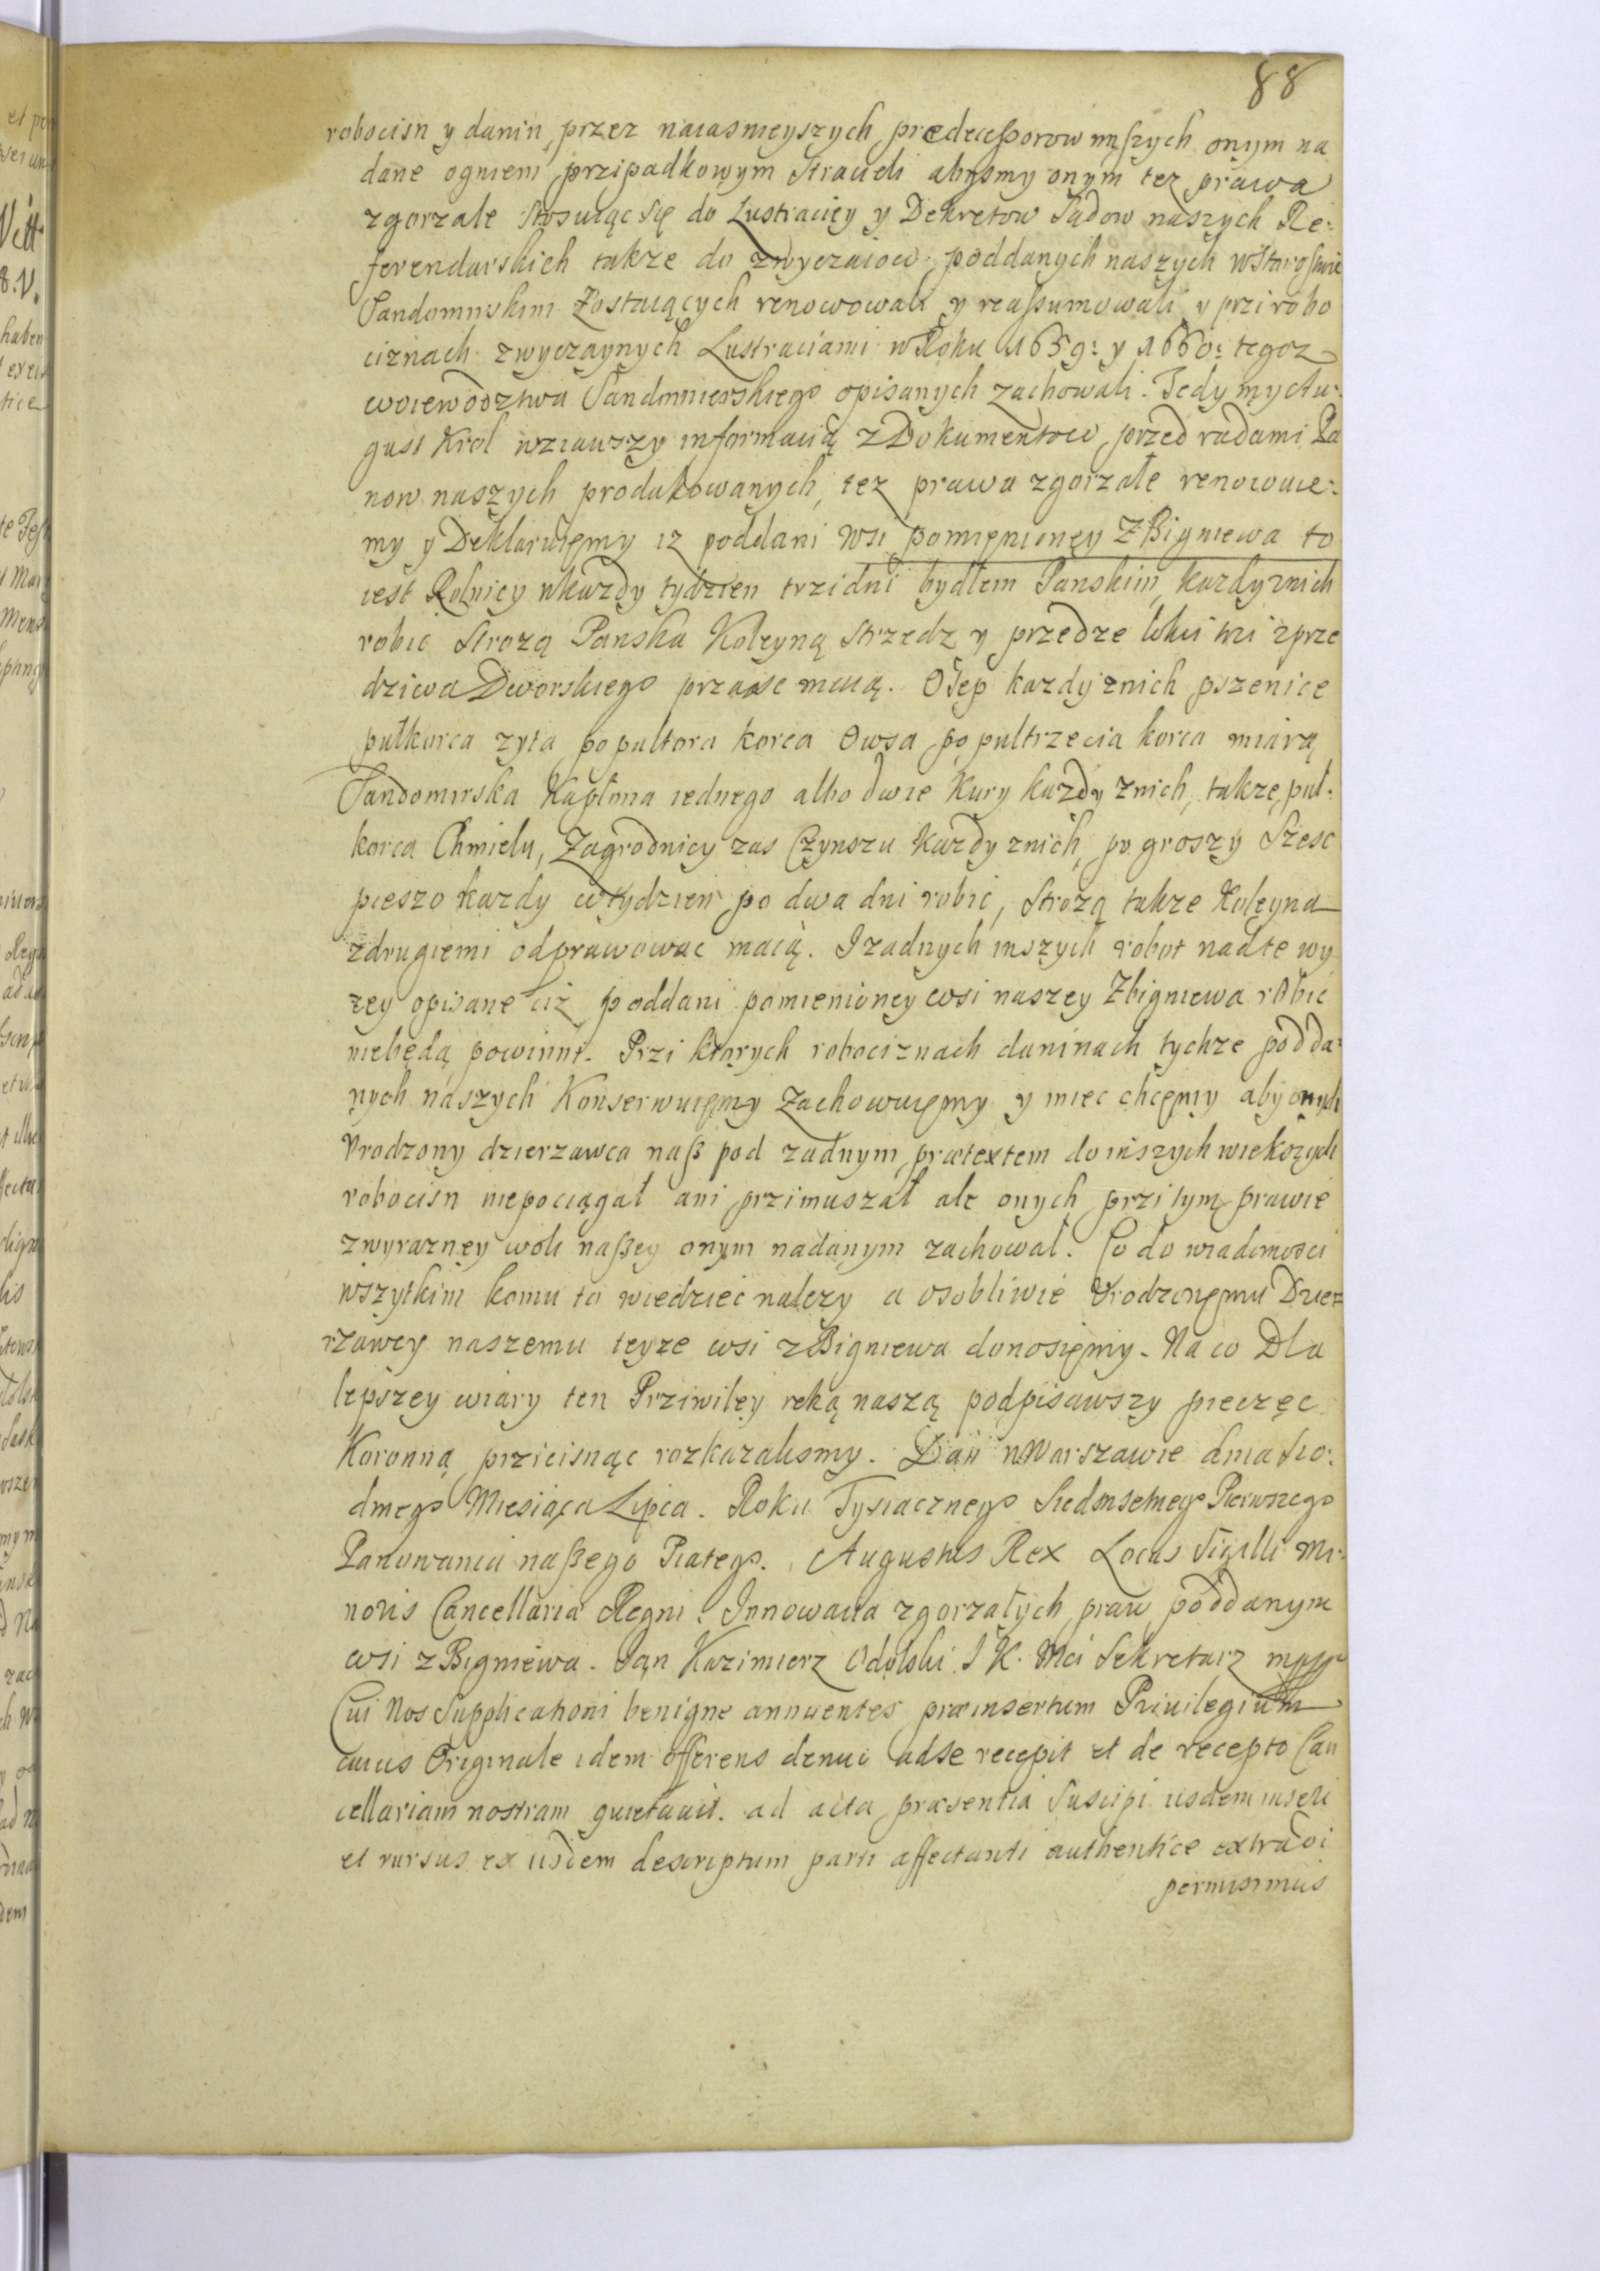 88
robocisn y danin, przez naiasnieyszych prædecessorow nszych onym na
dane ogniem przipadkowym stracieli abysmy onym tez prawa
zgorzałe stosuiąc się do Lustraciey y Dekretow Sądow naszych Re:
ferendarskich takze do zwyczaiow poddanych naszych w Starostwie
Sandomirskim Zostaiących renowowali y reassumowali y przi robo
ciznach zwyczaynych Lustraciami w Roku 1659: y 1660: tegoz
woiewodztwa Sandomierskiego opisanych zachowali. Tedy my Au:
gust Krol wziawszy informacią z Dokumentow przed radami Pa
now naszych produkowanych, tez prawa zgorzałe renowuie:
my y Deklaruięmy iz poddani wsi pomięnionęy ZBigniewa to
iest Rolnicy w kazdy tydzien trzi dni bydłem Panskim, kazdy z nich
robic Strozą Panska Koleyną strzedz y przedze łokci trzi z prze
dziwa Dworskiego prząsc maią. Osep kazdy z nich pszenice
pułkorca zyta po pułtora korca Owsa po pułtrzecia korca miarą
Sandomirska Kapłona iednego albo dwie Kury kazdy z nich, takze puł:
korca Chmielu, Zagrodnicy zas Czynszu kazdy z nich, po groszy Szesc
pieszo kazdy w tydzien po dwa dni robic, Strozą takze Koleyna
z drugiemi odprawowac maią. I zadnych inszych robot nad te wy
zey opisane ciz poddani pomienioney wsi naszey Zbigniewa robic
niebędą powinni. Przi ktorych robociznach daninach tychze podda:
nych naszych Konserwuięmy Zachowuięmy y miec chcęmy aby onych
Vrodzony dzierzawca nasz pod zadnym prætextem do inszych wiekszych
robocisn niepociągał ani przimuszał ale onych przi tym prawie
z wyraznęy woli naszey onym nadanym zachował. Co do wiadomosci
wszytkim komu to wiedziec nalezy a osobliwie Vrodzonęmu Dzier
rzawcy naszemu teyze wsi zBigniewa donosięmy. Na co Dla
lepszey wiary ten Prziwilęy ręką naszą podpisawszy pieczęc
Koronną przicisnąc rozkazalismy. Dan w Warszawie dnia sio:
dmego Miesiąca Lipca. Roku Tysiacznego Siedmsetnego Pierwszego
Panowania naszego Piatego. Augustus Rex Locus Sigilli Mi:
noris Cancellaria Regni. Innowacia zgorzałych praw poddanym
wsi zBigniewa. Jan Kazimierz Odolski J K. Mci Sekretarz mpp
Cui Nos Supplicationi benigne annuentes præinsertum Priuilegium
cuius Originale idem offerens denuo ad se recepit et de recepto Can
cellariam nostram quietauit. ad acta præsentia Suscipi iisdem inseri
et rursus ex iisdem descriptum parti affectanti authentice extradi
permisimus